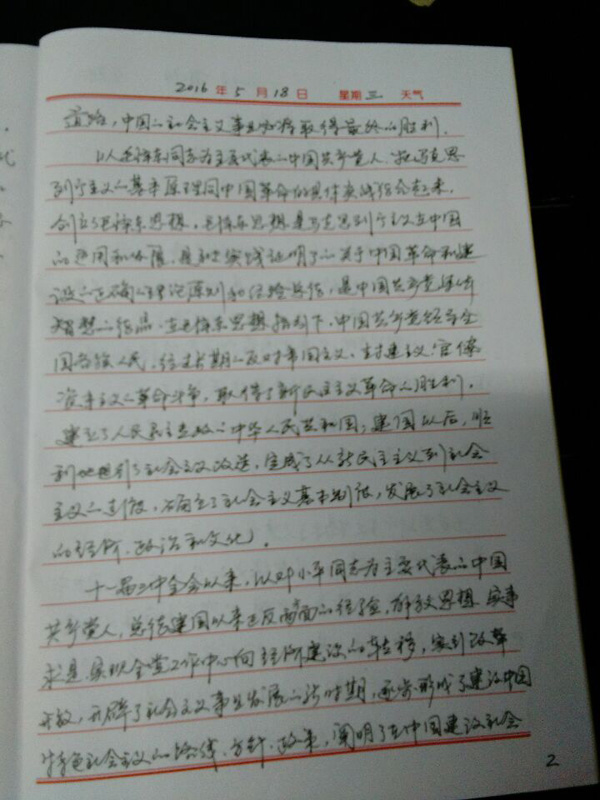 2016年5月18日 星期三 天气
道路，中国的社会主义事业必将取得最终的胜利．
以毛泽东同志为主要代表的中国共产党人，把马克思
列宁主义的基本原理同中国革命的具体实践结合起来，
创立了毛泽东思想，毛泽东思想是马克思列宁主义在中国
的运用和发展，是被实践证明了的关于中国革命和建
设的正确的理论原则和经验总结，是中国共产党集体
智慧的结晶．在毛泽东思想指引下，中国共产党领导全
国各族人民，经过长期的反对帝国主义、封建主义、官僚
资本主义的革命斗争，取得了新民主主义革命的胜利，
建立了人民民主专政的中华人民共和国；建国以后，顺
利地进行了社会主义改造，完成了从新民主主义到社会
主义的过渡，确立了社会主义基本制度，发展了社会主义
的经济、政治和文化．
十一届三中全会以来，以邓小平同志为主要代表的中国
共产党人，总结建国以来正反两面的经验，解放思想，实事
求是，实现全党工作中心向经济建设的转移，实行改革
开放，开辟了社会主义事业发展的新时期，逐步形成了建设中国
特色社会主义的路线、方针、政策，阐明了在中国建设社会
2